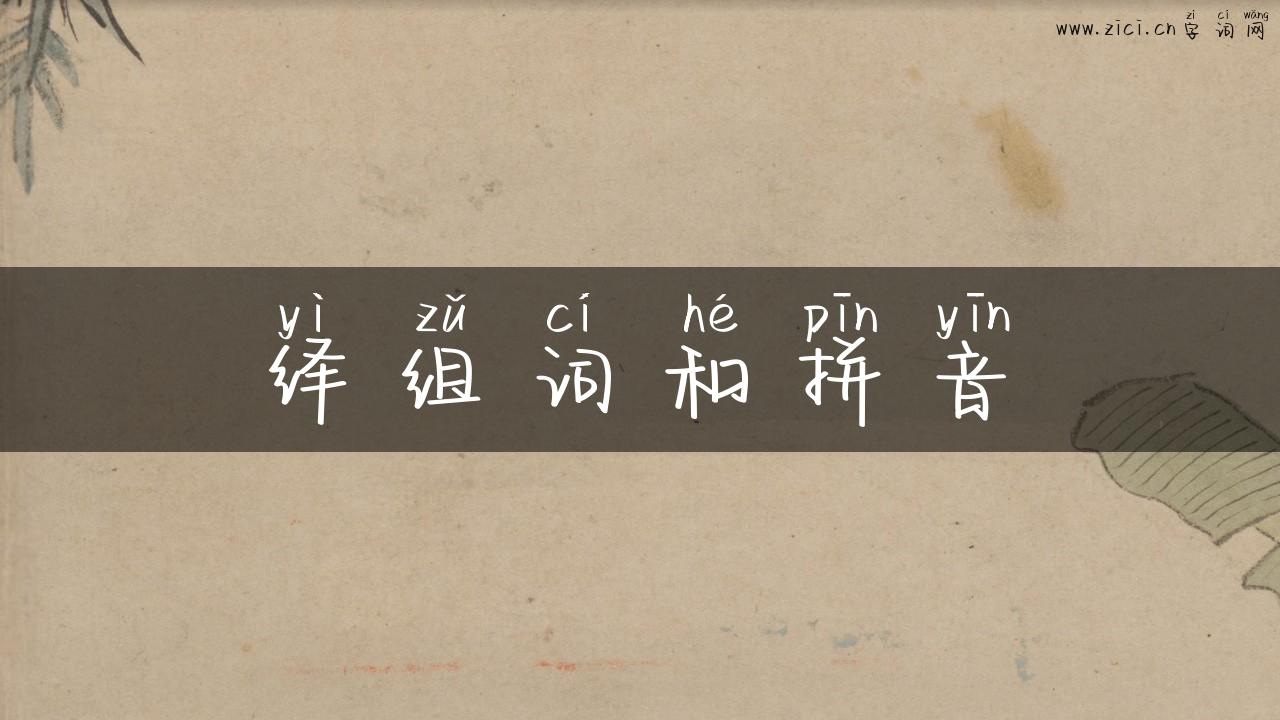 zì cí wǎng
www.zici.cn 字 词 网
yì zǔ cí hé pīn yīn
绎 组 词 和 拼 音